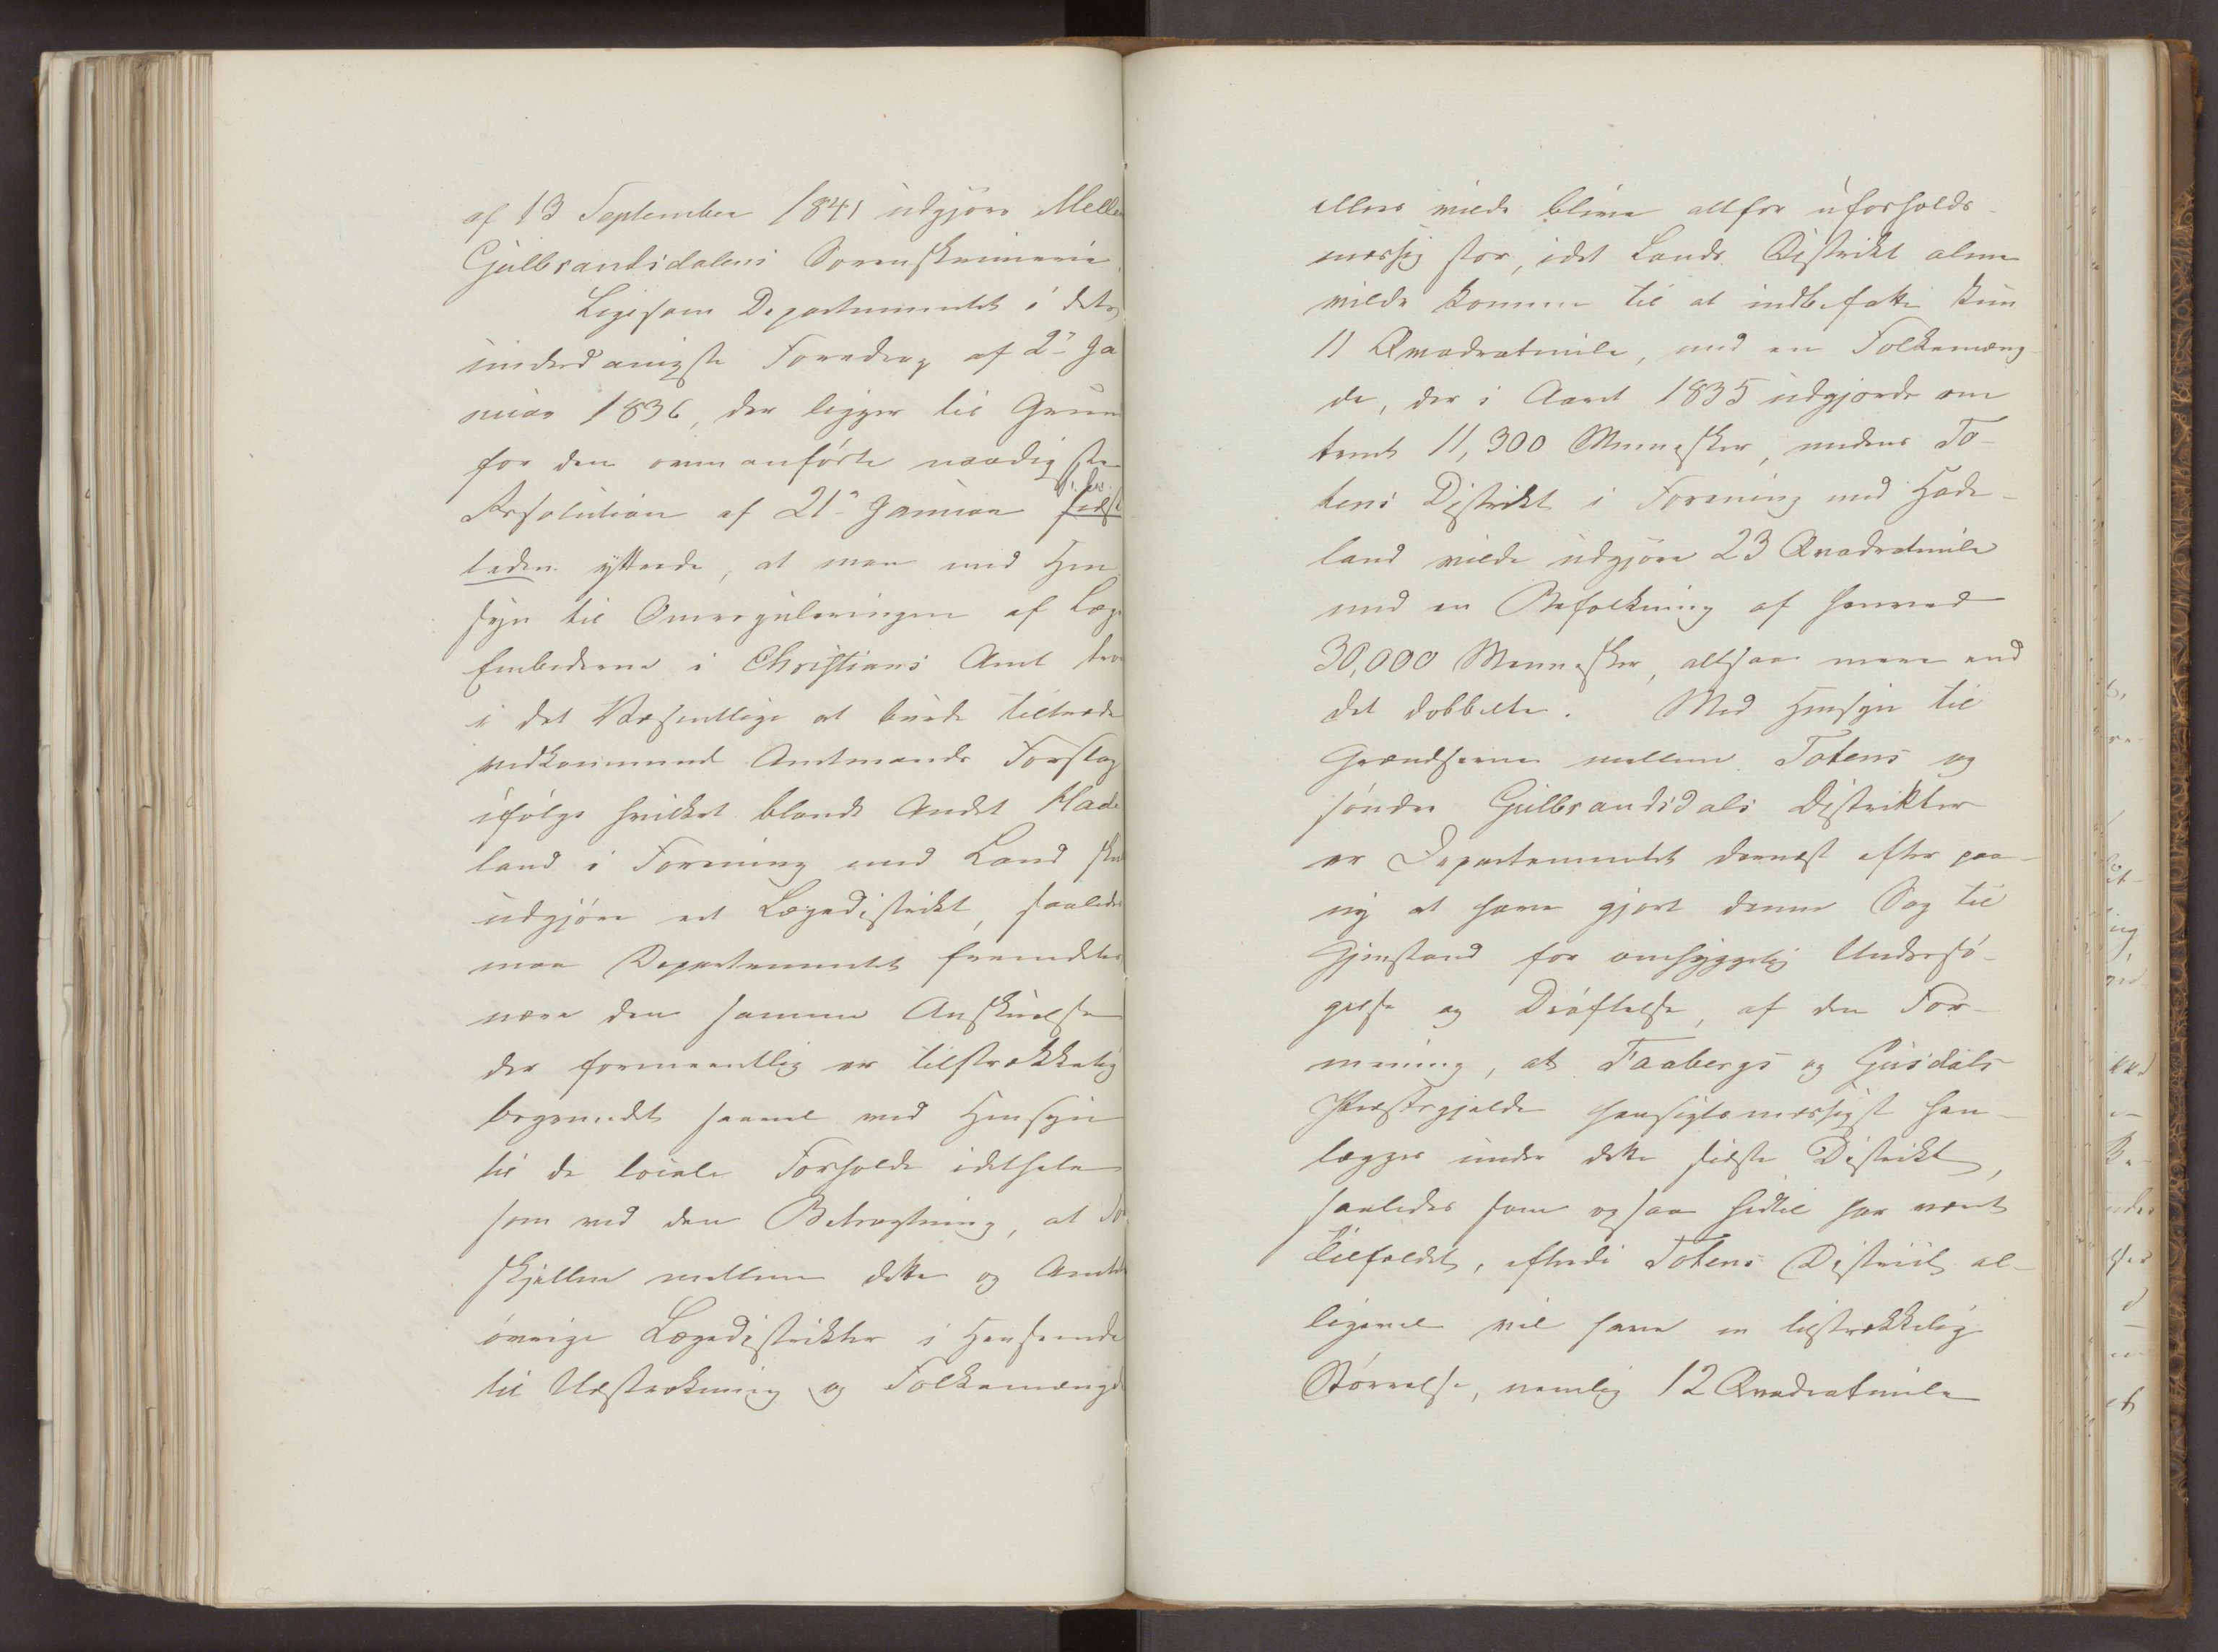 af 13 September 1841 udgjöre Mellem
Gulbrandsdalens Sorenskriverie.
Ligesom Departementet i dets
underdanigste Foredrag af 2n Ja
nuar 1836, der ligger til Grund
for den ovenanförte naadigste
Resolution af 21n Januar sidst
leden yttrede, at man med Hen
syn til Omreguleringen af Læge
Embederne i Christians Amt tro
i det Væsentlige at burde tiltræde
vedkommende Amtmands Forslag
ifölge hvilket blandt Andet Hade
land i Forening med Land skul
udgjöre eet Lægedistrikt, saaledes
maa Departementet fremdeles
være den samme Anskuelse
der formeentlig er tilstrækkelig
begrundet saavel med Hensyn
til de locale Forholde idethele
som ved den Betragtning, at For
skjellen mellem dette og Amtets
övrige Lægedistrikter i Henseende
til Udstrækning og Folkemængde
ellers vilde blive altfor uforholds-
mæssig stor, idet Lands Distrikt alene
vilde komme til at indbefatte kun
11 Qvadratmile, med en Folkemæng-
de, der i Aaret 1835 udgjorde om
trent 11,300 Mennesker, medens To-
tens Distrikt i Forening med Hade-
land vilde udgjöre 23 Qvadratmile
med en Befolkning af henved
30,000 Mennesker, altsaa mere end
det dobbelte. Med Hensyn til
Grændserne mellem Totens og
söndre Gulbrandsdals Distrikter
er Departementet dernæst efter paa-
ny at have gjort denne Sag til
Gjenstand for omhyggelig Undersö-
gelse og Dröftelse, af den For-
mening, at Faabergs og Gusdals
Præstegjælde hensigtsmæssigst hen-
lægges under dette sidste Distrikt,
saaledes som ogsaa hidtil har været
Tilfældet, efterdi Totens District al-
ligevel vil have en tilstrækkelig
Störrelse, nemlig 12 Qvadratmile